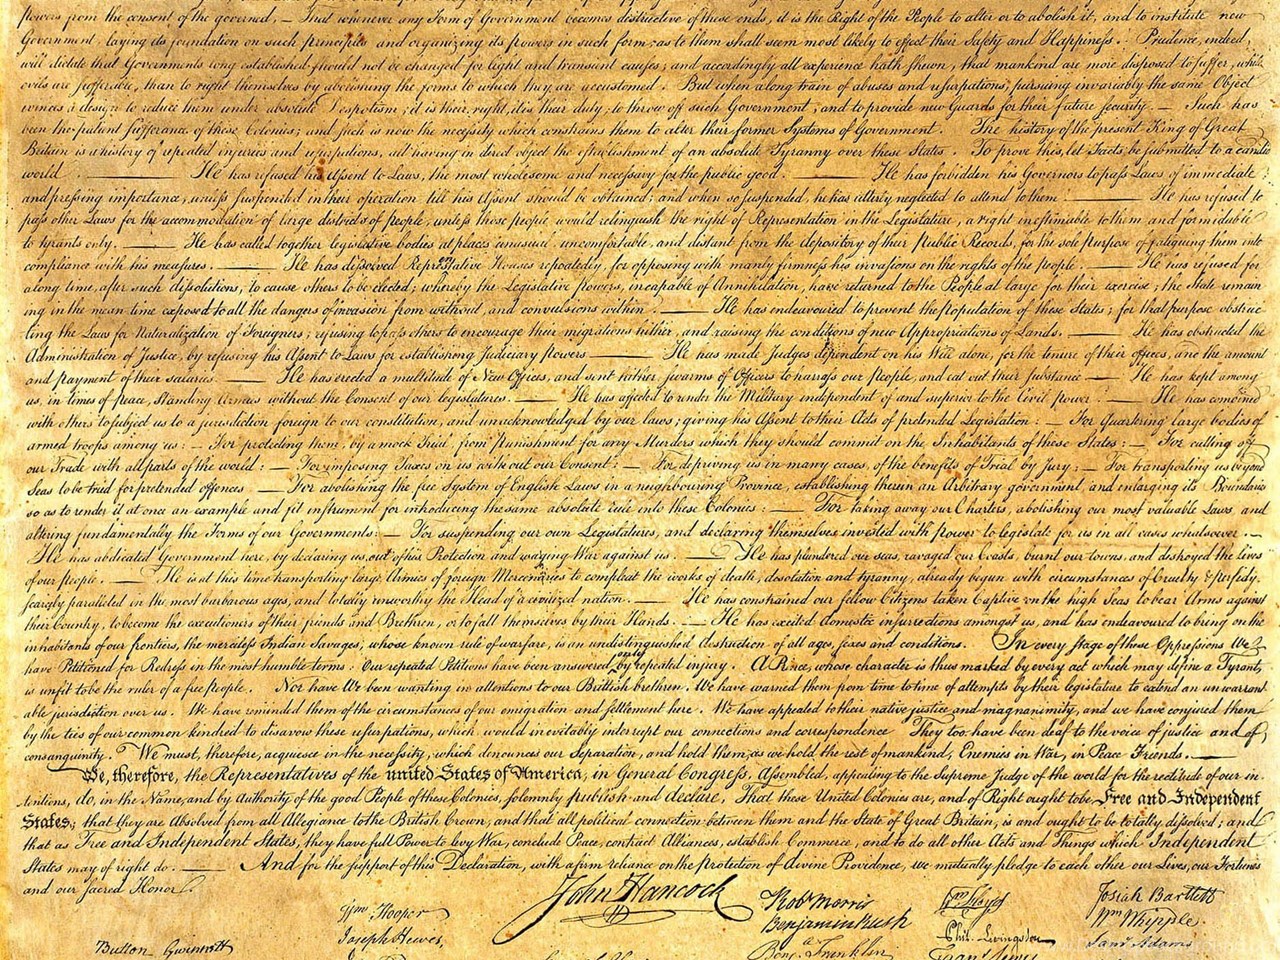 powers from the consent of the governed, — That whenever any Form of Government becomes destructive of these ends, it is the Right of the People to alter or to abolish it, and to institute new
Government, laying its foundation on such principles and organizing its powers in such form, as to them shall seem most likely to effect their Safety and Happiness. Prudence, indeed,
will dictate that Governments long established should not be changed for light and transient causes; and accordingly all experience hath shewn, that mankind are more disposed to suffer, while
evils are sufferable, than to right themselves by abolishing the forms to which they are accustomed. But when a long train of abuses and usurpations, pursuing invariably the same Object
evinces a design to reduce them under absolute Despotism, it is their right, it is their duty, to throw off such Government, and to provide new Guards for their future security. — Such has
been the patient sufferance of these Colonies; and such is now the necessity which constrains them to alter their former Systems of Government. The history of the present King of Great
Britain is a history of repeated injuries and usurpations, all having in direct object the establishment of an absolute Tyranny over these States. To prove this, let Facts be submitted to a candid
world. — He has refused his Assent to Laws, the most wholesome and necessary for the public good. — He has forbidden his Governors to pass Laws of immediate
and pressing importance, unless suspended in their operation till his Assent should be obtained; and when so suspended, he has utterly neglected to attend to them. — He has refused to
pass other Laws for the accommodation of large districts of people, unless those people would relinquish the right of Representation in the Legislature, a right inestimable to them and formidable
to tyrants only. — He has called together legislative bodies at places unusual, uncomfortable, and distant from the depository of their Public Records, for the sole purpose of fatiguing them into
compliance with his measures. — He has dissolved Representative Houses repeatedly, for opposing with manly firmness his invasions on the rights of the people. — He has refused for
a long time, after such dissolutions, to cause others to be elected; whereby the Legislative powers, incapable of Annihilation, have returned to the People at large for their exercise; the State remain
ing in the mean time exposed to all the dangers of invasion from without, and convulsions within. — He has endeavoured to prevent the population of these States; for that purpose obstruc
ting the Laws for Naturalization of Foreigners; refusing to pass others to encourage their migrations hither, and raising the conditions of new Appropriations of Lands. — He has obstructed the
Administration of Justice, by refusing his Assent to Laws for establishing Judiciary powers. — He has made Judges dependent on his Will alone, for the tenure of their offices, and the amount
and payment of their salaries. — He has erected a multitude of New Offices, and sent hither swarms of Officers to harrass our people, and eat out their substance. — He has kept among
us, in times of peace, Standing Armies without the Consent of our legislatures. — He has affected to render the Military independent of and superior to the Civil power. — He has combined
with others to subject us to a jurisdiction foreign to our constitution, and unacknowledged by our laws; giving his Assent to their Acts of pretended Legislation: — For Quartering large bodies of
armed troops among us: — For protecting them, by a mock Trial, from punishment for any Murders which they should commit on the Inhabitants of these States: — For cutting off
our Trade with all parts of the world: — For imposing Taxes on us without our Consent: — For depriving us in many cases, of the benefits of Trial by Jury: — For transporting us beyond
Seas to be tried for pretended offences — For abolishing the free System of English Laws in a neighbouring Province, establishing therein an Arbitrary government, and enlarging its Boundaries
so as to render it at once an example and fit instrument for introducing the same absolute rule into these Colonies: — For taking away our Charters, abolishing our most valuable Laws, and
altering fundamentally the Forms of our Governments: — For suspending our own Legislatures, and declaring themselves invested with power to legislate for us in all cases whatsoever. —
He has abdicated Government here, by declaring us out of his Protection and waging War against us. — He has plundered our seas, ravaged our Coasts, burnt our towns, and destroyed the lives
of our people. — He is at this time transporting large Armies of foreign Mercenaries to compleat the works of death, desolation and tyranny, already begun with circumstances of Cruelty & perfidy
scarcely paralleled in the most barbarous ages, and totally unworthy the Head of a civilized nation. — He has constrained our fellow Citizens taken Captive on the high Seas to bear Arms against
their Country, to become the executioners of their friends and Brethren, or to fall themselves by their Hands. — He has excited domestic insurrections amongst us, and has endeavoured to bring on the
inhabitants of our frontiers, the merciless Indian Savages, whose known rule of warfare, is an undistinguished destruction of all ages, sexes and conditions. In every stage of these Oppressions We
have Petitioned for Redress in the most humble terms: Our repeated Petitions have been answered only by repeated injury. A Prince, whose character is thus marked by every act which may define a Tyrant,
is unfit to be the ruler of a free people. Nor have We been wanting in attentions to our Brittish brethren. We have warned them from time to time of attempts by their legislature to extend an unwarrant
able jurisdiction over us. We have reminded them of the circumstances of our emigration and settlement here. We have appealed to their native justice and magnanimity, and we have conjured them
by the ties of our common kindred to disavow these usurpations, which, would inevitably interrupt our connections and correspondence. They too have been deaf to the voice of justice and of
consanguinity. We must, therefore, acquiesce in the necessity, which denounces our Separation, and hold them, as we hold the rest of mankind, Enemies in War, in Peace Friends. —
We, therefore, the Representatives of the united States of America, in General Congress, Assembled, appealing to the Supreme Judge of the world for the rectitude of our in
tentions, do, in the Name, and by Authority of the good People of these Colonies, solemnly publish and declare, That these United Colonies are, and of Right ought to be Free and Independent
States; that they are Absolved from all Allegiance to the British Crown, and that all political connection between them and the State of Great Britain, is and ought to be totally dissolved; and
that as Free and Independent States, they have full Power to levy War, conclude Peace, contract Alliances, establish Commerce, and to do all other Acts and Things which Independent
States may of right do. — And for the support of this Declaration, with a firm reliance on the protection of divine Providence, we mutually pledge to each other our Lives, our Fortunes
and our sacred Honor.
John Hancock
Josiah Bartlett
Wm Hooper
Robt Morris
Wm Floyd
Wm Whipple
Joseph Hewes,
Benjamin Rush
Phil. Livingston
Saml Adams
Button Gwinnett
Benja. Franklin